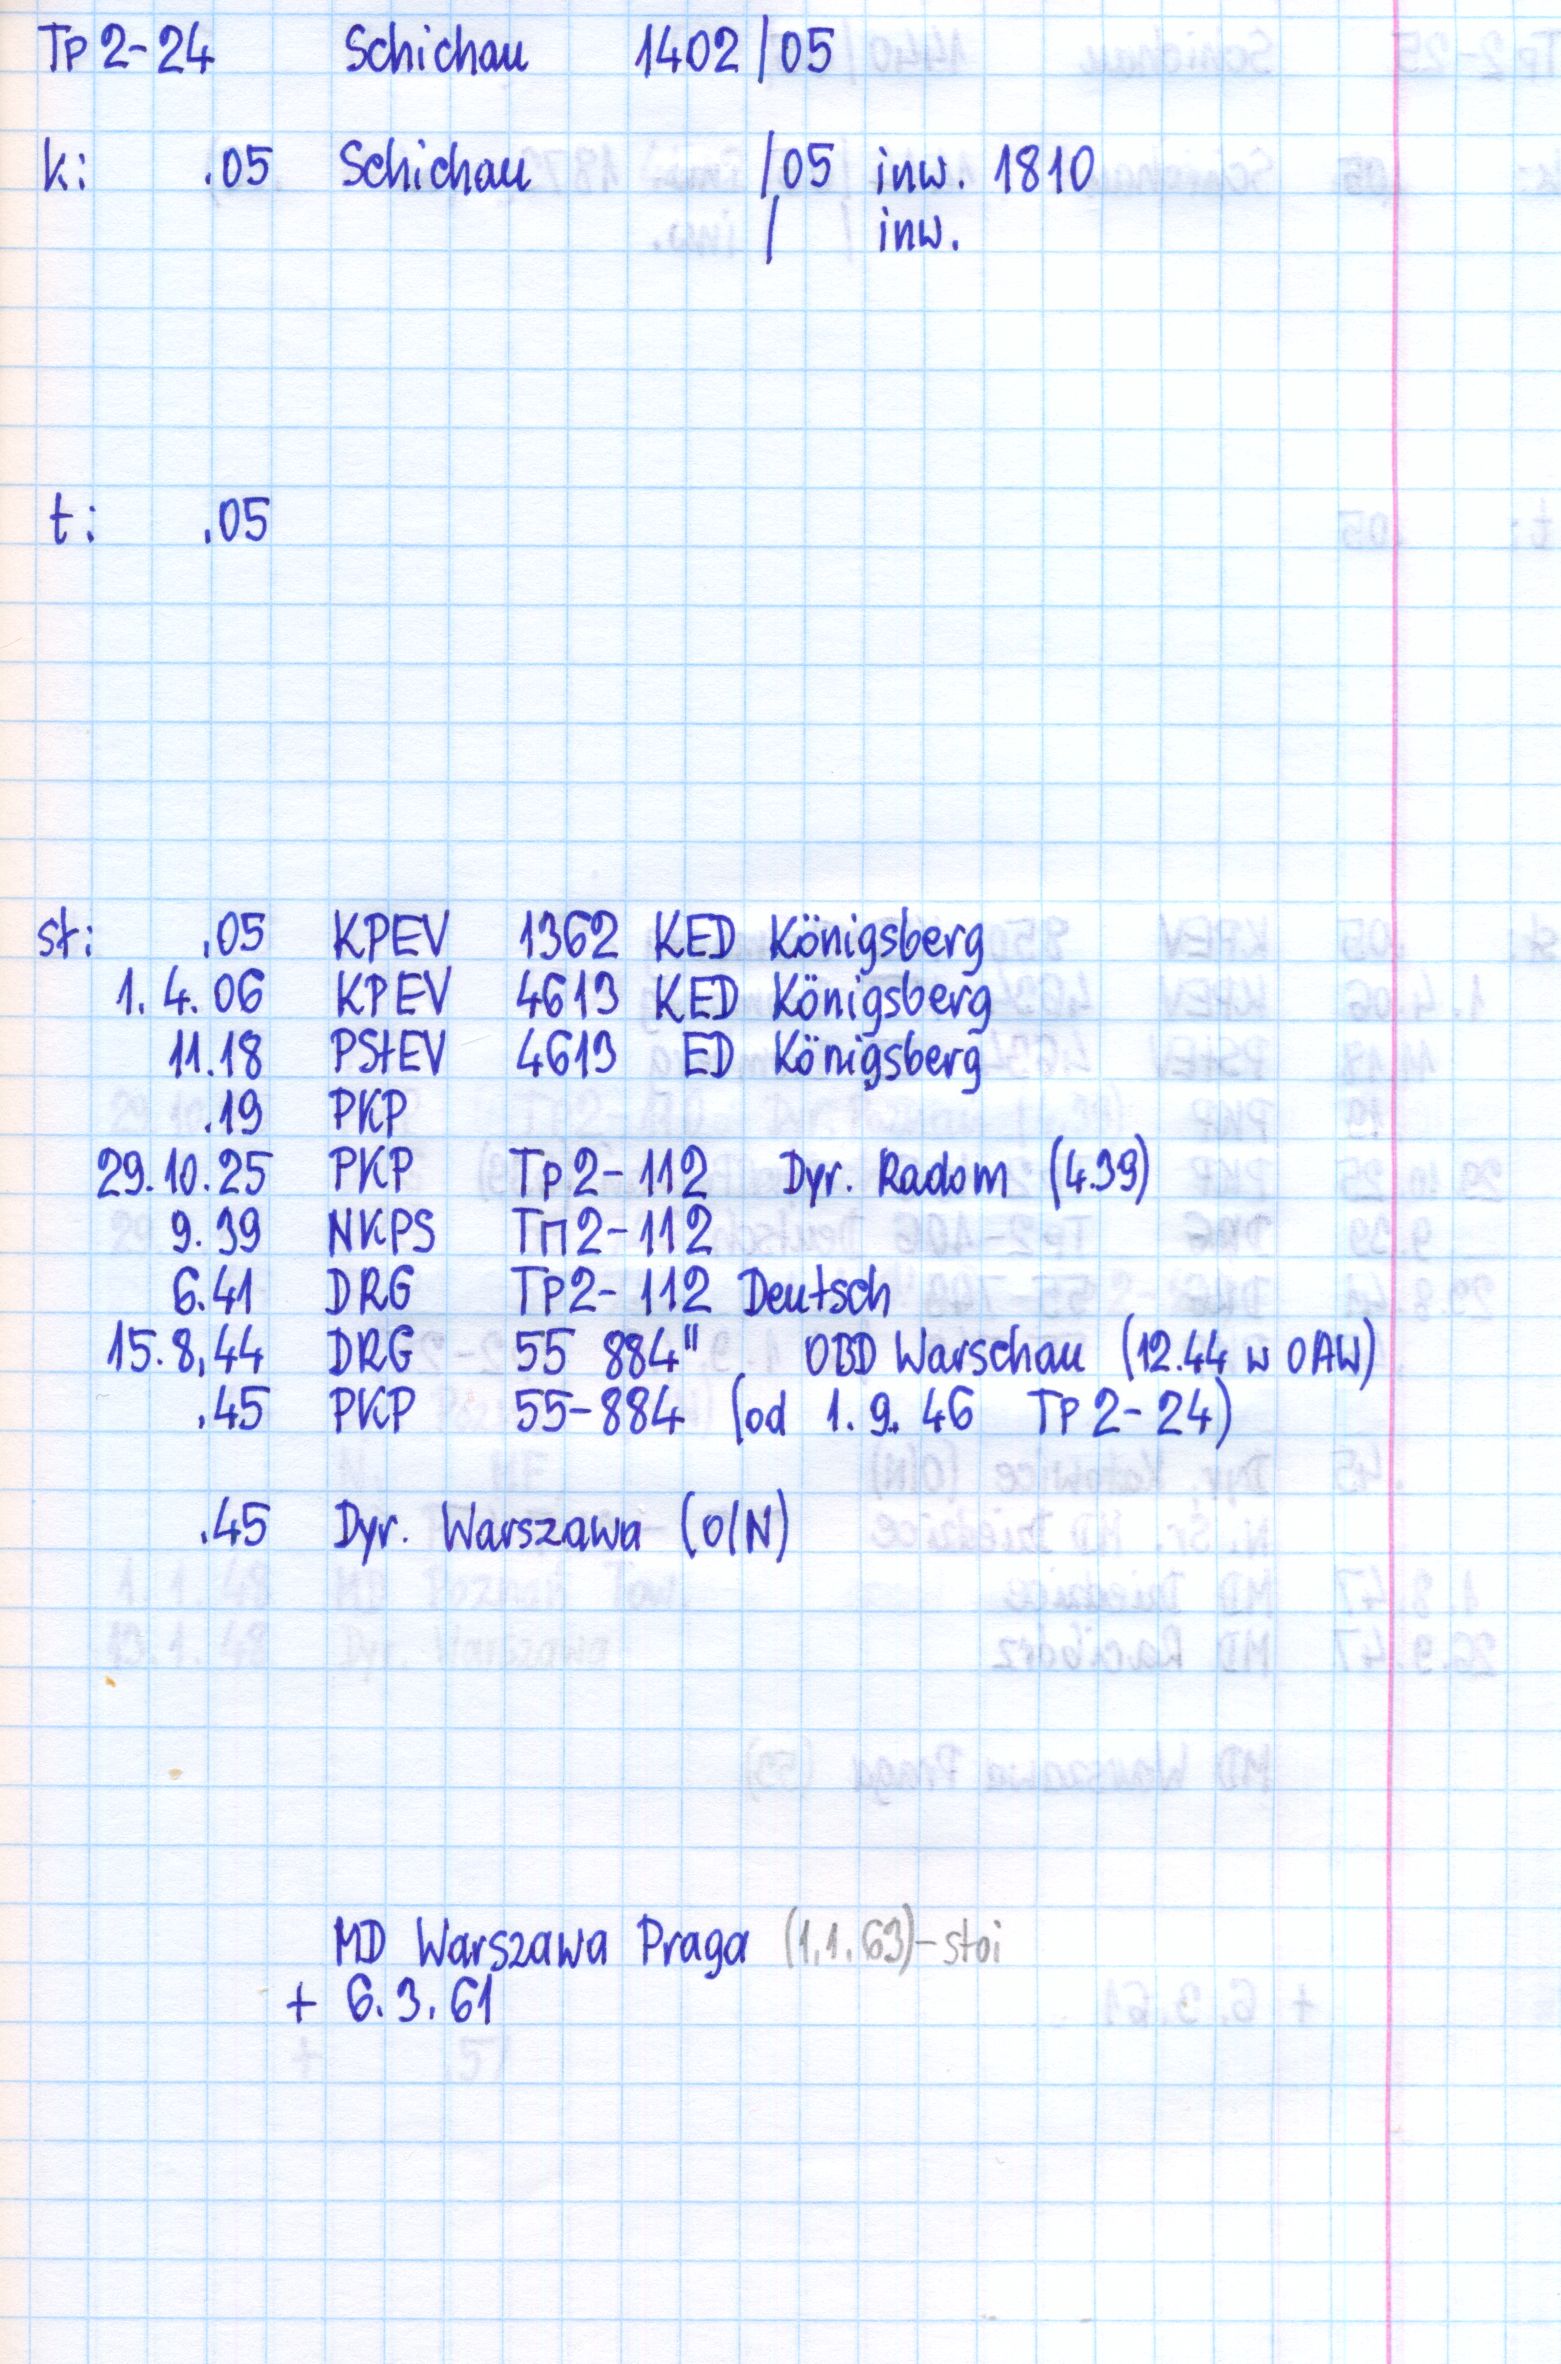 Tp 2-24 Schichau 1402/05
k: .05 Schichau /05 inw. 1810
/ inw.
t: .05
st: .05 KPEV 1362 KED Königsberg
1.4.06 KPEV 4613 KED Königsberg
11.18 PStEV 4613 ED Königsberg
.19 PKP
29.10.25 PKP Tp2-112 Dyr. Radom (4.39)
9.39 NKPS Тп2-112
6.41 DRG Tp2-112 Deutsch
15.8.44 DRG 55 884" OBD Warschau (12.44 w OAW)
.45 PKP 55-884 (od 1.9.46 Tp2-24)
.45 Dyr. Warszawa (O/N)
MD Warszawa Praga (1.1.63)-stoi
+ 6.3.61